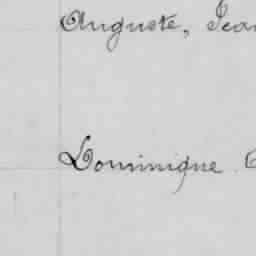 Auguste, Jean
Dominique